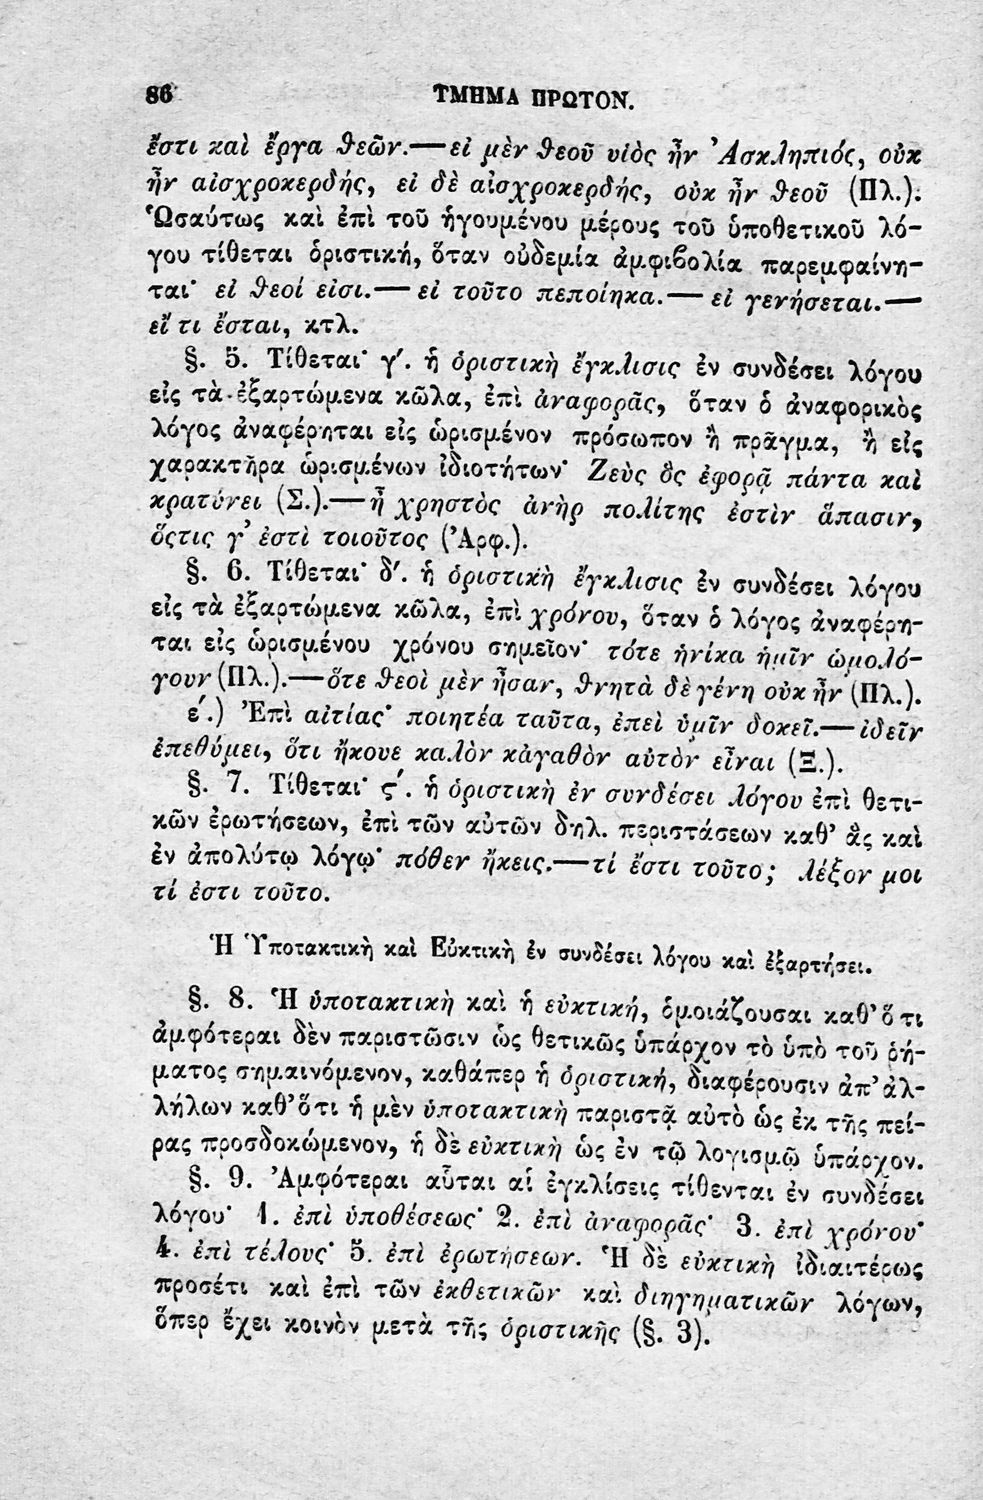 86 ΤΜΗΜΑ ΠΡΩΤΟΝ.
ἔστι καὶ ἔργα θεῶν.—εἰ μὲν θεοῦ υἱὸς ἦν Ἀσκληπιός, οὐκ
ἦν αἰσχροκερδής, εἰ δὲ αἰσχροκερδής, οὐκ ἦν θεοῦ (Πλ.).
Ὡσαύτως καὶ ἐπὶ τοῦ ἡγουμένου μέρους τοῦ ὑποθετικοῦ λό-
γου τίθεται ὁριστική, ὅταν οὐδεμία ἀμφιβολία παρεμφαίνη-
ται· εἰ θεοί εἰσι.—εἰ τοῦτο πεποίηκα.—εἰ γενήσεται.—
εἴ τι ἔσται, κτλ.
§. 5. Τίθεται· γ′. ἡ ὁριστικὴ ἔγκλισις ἐν συνδέσει λόγου
εἰς τὰ ἐξαρτώμενα κῶλα, ἐπὶ ἀναφορᾶς, ὅταν ὁ ἀναφορικὸς
λόγος ἀναφέρηται εἰς ὡρισμένον πρόσωπον ἢ πρᾶγμα, ἢ εἰς
χαρακτῆρα ὡρισμένων ἰδιοτήτων· Ζεὺς ὃς ἐφορᾷ πάντα καὶ
κρατύνει (Σ.).—ἦ χρηστὸς ἀνὴρ πολίτης ἐστὶν ἅπασιν,
ὅςτις γ’ ἐστὶ τοιοῦτος (Ἀρφ.).
§. 6. Τίθεται· δ′. ἡ ὁριστικὴ ἔγκλισις ἐν συνδέσει λόγου
εἰς τὰ ἐξαρτώμενα κῶλα, ἐπὶ χρόνου, ὅταν ὁ λόγος ἀναφέρη-
ται εἰς ὡρισμένου χρόνου σημεῖον· τότε ἡνίκα ἡμῖν ὡμολό-
γουν (Πλ.).—ὅτε θεοὶ μὲν ἦσαν, θνητὰ δὲ γένη οὐκ ἦν (Πλ.).
ε′.) Ἐπὶ αἰτίας· ποιητέα ταῦτα, ἐπεὶ ὑμῖν δοκεῖ.—ἰδεῖν
ἐπεθύμει, ὅτι ἤκουε καλὸν κἀγαθὸν αὐτὸν εἶναι (Ξ.).
§. 7. Τίθεται· ς′. ἡ ὁριστικὴ ἐν συνδέσει λόγου ἐπὶ θετι-
κῶν ἐρωτήσεων, ἐπὶ τῶν αὐτῶν δηλ. περιστάσεων καθ’ ἃς καὶ
ἐν ἀπολύτῳ λόγῳ· πόθεν ἥκεις.—τί ἔστι τοῦτο; λέξον μοι
τί ἐστι τοῦτο.
Ἡ Ὑποτακτικὴ καὶ Εὐκτικὴ ἐν συνδέσει λόγου καὶ ἐξαρτήσει.
§. 8. Ἡ ὑποτακτικὴ καὶ ἡ εὐκτική, ὁμοιάζουσαι καθ’ ὅ τι
ἀμφότεραι δὲν παριστῶσιν ὡς θετικῶς ὑπάρχον τὸ ὑπὸ τοῦ ῥή-
ματος σημαινόμενον, καθάπερ ἡ ὁριστική, διαφέρουσιν ἀπ’ ἀλ-
λήλων καθ’ ὅτι ἡ μὲν ὑποτακτικὴ παριστᾷ αὐτὸ ὡς ἐκ τῆς πεί-
ρας προσδοκώμενον, ἡ δὲ εὐκτικὴ ὡς ἐν τῷ λογισμῷ ὑπάρχον.
§. 9. Ἀμφότεραι αὗται αἱ ἐγκλίσεις τίθενται ἐν συνδέσει
λόγου· 1. ἐπὶ ὑποθέσεως· 2. ἐπὶ ἀναφορᾶς· 3. ἐπὶ χρόνου·
4. ἐπὶ τέλους· 5. ἐπὶ ἐρωτήσεων. Ἡ δὲ εὐκτικὴ ἰδιαιτέρως
προσέτι καὶ ἐπὶ τῶν ἐκθετικῶν καὶ διηγηματικῶν λόγων,
ὅπερ ἔχει κοινὸν μετὰ τῆς ὁριστικῆς (§. 3).